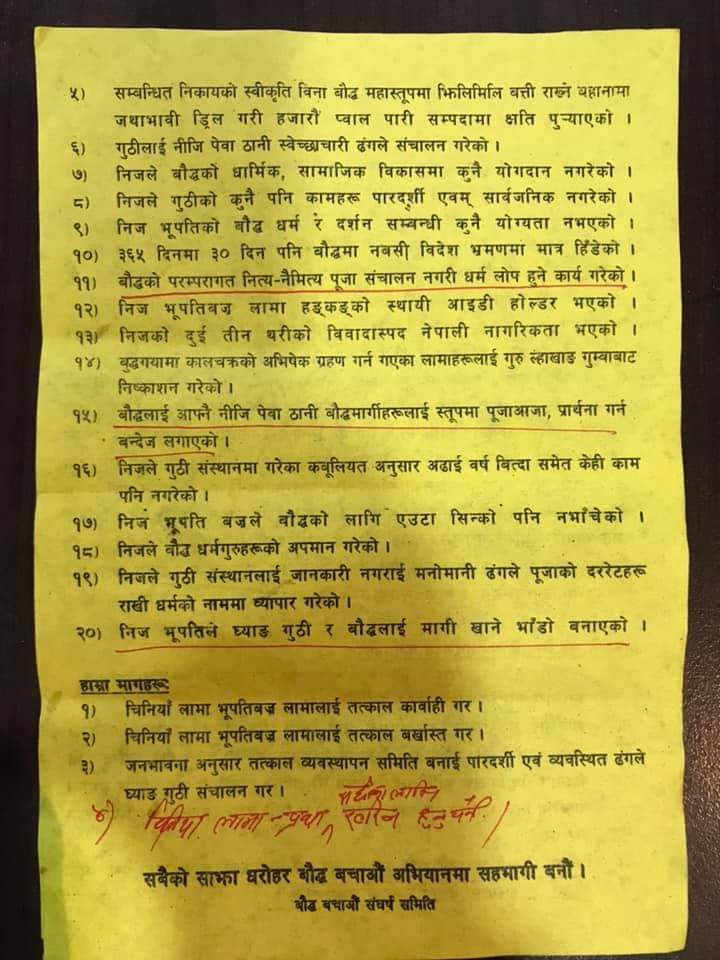 ५) सम्बन्धित निकायको स्वीकृति विना बौद्ध महास्तूपमा झिलिर्मिल बत्ती राख्ने बहानामा
जथाभावी ड्रिल गरी हजारौं प्वाल पारी सम्पदामा क्षति पुऱ्याएको ।
६) गुठीलाई नीजि पेवा ठानी स्वेच्छाचारी ढंगले संचालन गरेको ।
७) निजले बौद्धको धार्मिक, सामाजिक विकासमा कुनै योगदान नगरेको ।
८) निजले गुठीको कुनै पनि कामहरू पारदर्शी एवम् सार्वजनिक नगरेको ।
९) निज भूपतिको बौद्ध धर्म र दर्शन सम्बन्धी कुनै योग्यता नभएको ।
१०) ३६५ दिनमा ३० दिन पनि बौद्धमा नबसी विदेश भ्रमणमा मात्र हिँडेको ।
११) बौद्धको परम्परागत नित्य-नैमित्य पूजा संचालन नगरी धर्म लोप हुने कार्य गरेको ।
१२) निज भूपतिबज्र लामा हङ्कङ्को स्थायी आइडी होल्डर भएको ।
१३) निजको दुई तीन थरीको विवादास्पद नेपाली नागरिकता भएको ।
१४) बुद्धगयामा कालचक्रको अभिषेक ग्रहण गर्न गएका लामाहरूलाई गुरु ल्हाखाङ गुम्बाबाट
निष्काशन गरेको ।
१५) बौद्धलाई आफ्नै नीजि पेवा ठानी बौद्धमार्गीहरूलाई स्तूपमा पूजाआजा, प्रार्थना गर्न
बन्देज लगाएको ।
१६) निजले गुठी संस्थानमा गरेका कबूलियत अनुसार अढाई वर्ष बित्दा समेत केही काम
पनि नगरेको ।
१७) निज भूपति बज्रले बौद्धको लागि एउटा सिन्को पनि नभाँचेको ।
१८) निजले बौद्ध धर्मगुरुहरूको अपमान गरेको ।
१९) निजले गुठी संस्थानलाई जानकारी नगराई मनोमानी ढंगले पूजाको दररेटहरू
राखी धर्मको नाममा व्यापार गरेको ।
२०) निज भूपतिले घ्याङ गुठी र बौद्धलाई मागी खाने भाँडो बनाएको ।
हाम्रा मागहरू:
१) चिनियाँ लामा भूपतिबज्र लामालाई तत्काल कार्वाही गर ।
२) चिनियाँ लामा भूपतिबज्र लामालाई तत्काल बर्खास्त गर ।
३) जनभावना अनुसार तत्काल व्यवस्थापन समिति बनाई पारदर्शी एवं व्यवस्थित ढंगले
घ्याङ गुठी संचालन गर ।
सधैंका लागि
४) चिनिया लामा-प्रथा खारेज हुनु पर्ने ।
सबैको साझा धरोहर बौद्ध बचाऔं अभियानमा सहभागी बनौं ।
बौद्ध बचाऔं संघर्ष समिति